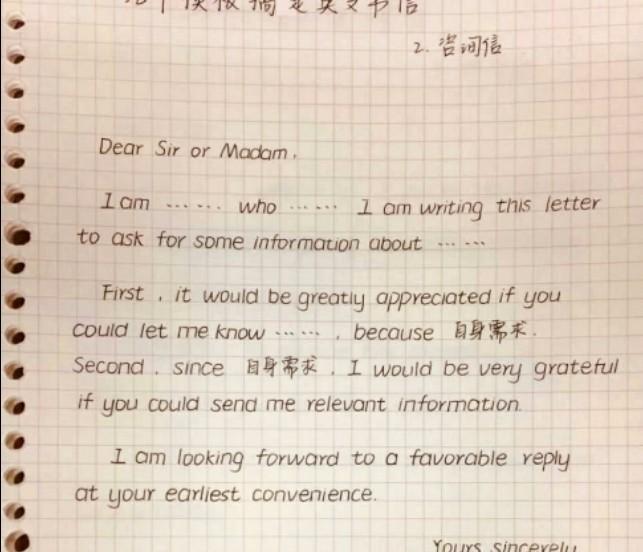 个模板搞定英文书信
2. 咨询信
Dear Sir or Madam,
I am ...... who ...... I am writing this letter
to ask for some information about ......
First, it would be greatly appreciated if you
could let me know ......, because 自身需求.
Second, since 自身需求, I would be very grateful
if you could send me relevant information.
I am looking forward to a favorable reply
at your earliest convenience.
Yours sincerely